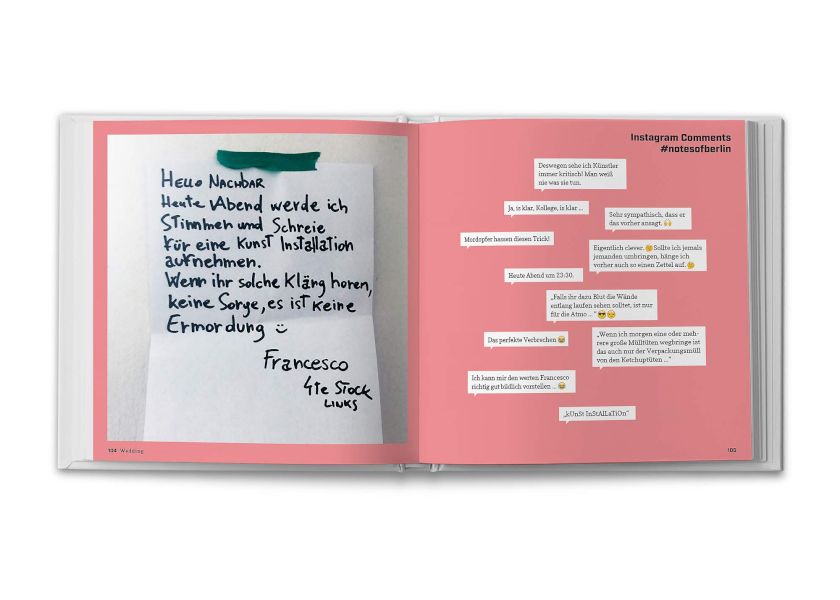 Hello Nachbar
Heute Abend werde ich
Stimmen und Schreie
für eine Kunst Installation
aufnehmen.
Wenn ihr solche Kläng horen,
keine Sorge, es ist keine
Ermordung ن
Francesco
4te Stock
LINKS
104 Wedding
Instagram Comments
#notesofberlin
Deswegen sehe ich Künstler
immer kritisch! Man weiß
nie was sie tun.
Ja, is klar, Kollege, is klar ...
Sehr sympathisch, dass er
das vorher ansagt. 🙌
Mordopfer hassen diesen Trick!
Eigentlich clever. 🤔 Sollte ich jemals
jemanden umbringen, hänge ich
vorher auch so einen Zettel auf. 🤔
Heute Abend um 23:30.
„Falls ihr dazu Blut die Wände
entlang laufen sehen solltet, ist nur
für die Atmo ... “ 😎😔
Das perfekte Verbrechen 😂
„Wenn ich morgen eine oder meh-
rere große Mülltüten wegbringe ist
das auch nur der Verpackungsmüll
von den Ketchuptüten ...“
Ich kann mir den werten Francesco
richtig gut bildlich vorstellen ... 😂
„kUnSt InStAlLaTiOn“
105